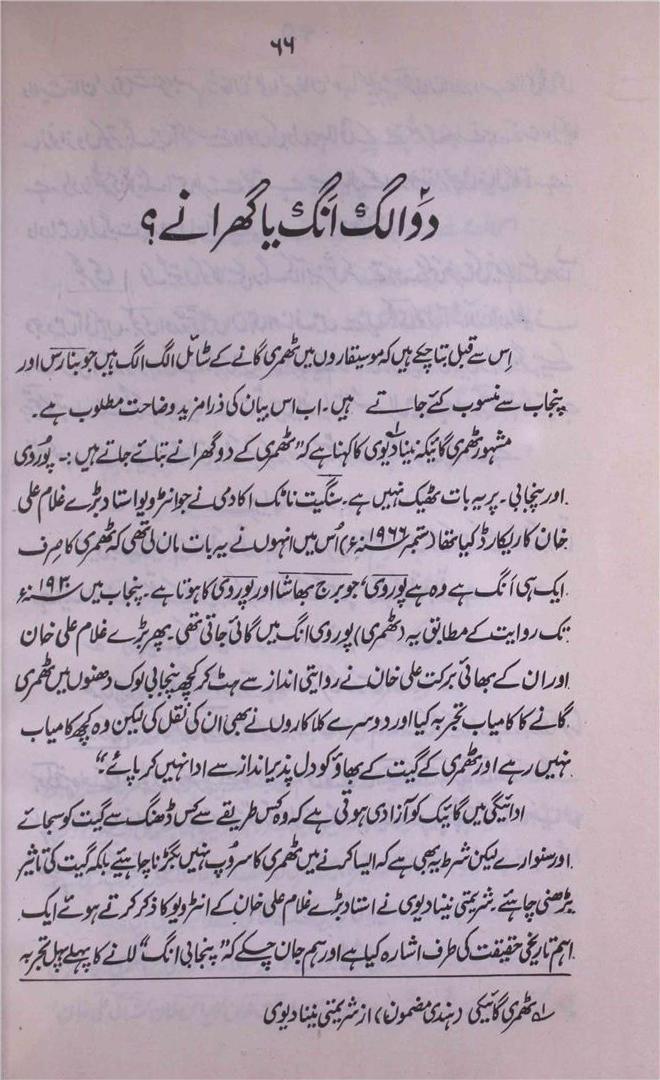 ۶۶
دو الگ انگ یا گھرانے؟
اِس سے قبل بتا چکے ہیں کہ موسیقاروں میں ٹھمری گانے کے شائل الگ الگ ہیں جو بنارس اور
پنجاب سے منسوب کئے جاتے ہیں۔ اب اس بیان کی ذرا مزید وضاحت مطلوب ہے۔
مشہور ٹھمری گائیکہ نینا دیوی کا کہنا ہے کہ "ٹھمری کے دو گھرانے بتائے جاتے ہیں :۔ پُوروی
اور پنجابی۔ پر یہ بات ٹھیک نہیں ہے۔ سنگیت ناٹک اکادمی نے جو انٹرویو استاد بڑے غلام علی
خان کا ریکارڈ کیا تھا (ستمبر ۱۹۶۶ء) اُس میں انہوں نے یہ بات مان لی تھی کہ ٹھمری کا صِرف
ایک ہی اَنگ ہے وہ ہے پوروی، جو برج بھاشا اور پوروی کا ہوتا ہے۔ پنجاب میں ۱۹۳۰ء
تک روایت کے مطابق یہ (ٹھمری) پوروی انگ میں گائی جاتی تھی۔ پھر بڑے غلام علی خان
اور ان کے بھائی برکت علی خان نے روایتی انداز سے ہٹ کر کچھ پنجابی لوک دھنوں میں ٹھمری
گانے کا کامیاب تجربہ کیا اور دوسرے کلاکاروں نے بھی ان کی نقل کی لیکن وہ کچھ کامیاب
نہیں رہے اور ٹھمری کے گیت کے بھاؤ کو دل پذیر انداز سے ادا نہیں کر پائے۔"
ادائیگی میں گائیک کو آزادی ہوتی ہے کہ وہ کس طریقے سے کس ڈھنگ سے گیت کو سجائے
اور سنوارے لیکن شرط یہ بھی ہے کہ ایسا کرنے میں ٹھمری کا سروپ نہیں بگڑنا چاہئیے بلکہ گیت کی تاثیر
بڑھنی چاہئے۔ شریمتی نینا دیوی نے استاد بڑے غلام علی خان کے انٹرویو کا ذکر کرتے ہوئے ایک
اہم تاریخی حقیقت کی طرف اشارہ کیا ہے اور ہم جان چکے کہ "پنجابی انگ" لانے کا پہلے پہل تجربہ
۱؎ ٹھمری گائیکی (ہندی مضمون) از شریمتی نینا دیوی